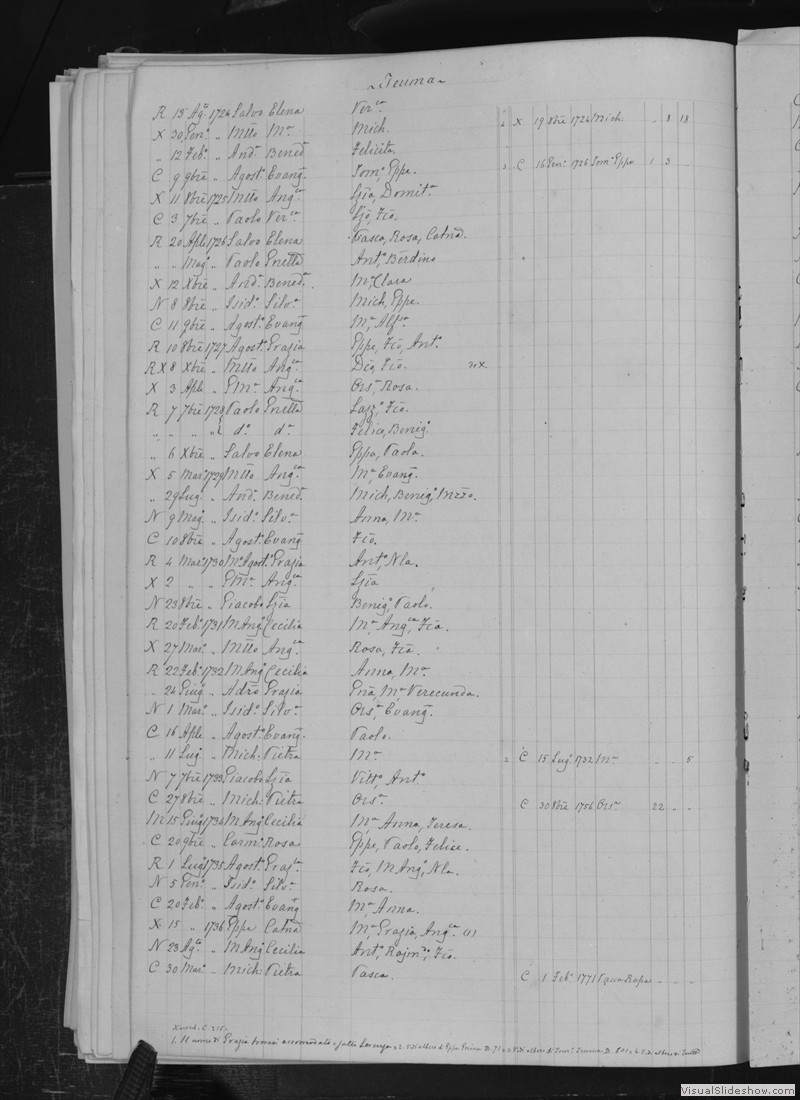 Teuma
R 15 Ag. 1724 Salvo Elena Ver.ca 2 X 19 8bre 1724 Mich. .. 8 18
X 30 Gen.o „ Mtto M.a Mich.
„ 12 Feb.o „ And.a Bened.a Felicita.
C 9 9bre „ Agost.o Evang. Tom.o Eppe. 2 C 16 Gen.o 1726 Tom.o Eppe 1 3 ..
X 11 8bre 1725 Mtto Ang.ca Gjia, Domit.a
C 3 7bre „ Paolo Ver.ca Gjo, Fco.
R 20 Aple 1726 Salvo Elena Pasca, Rosa, Catna.
„ „ Mag.o „ Paolo Gnetta Ant.o Berdino
X 12 Xbre „ And.a Bened.a M.a Clara
N 8 8bre „ Isid.o Silv.a Mich, Eppe.
C 11 9bre „ Agost.o Evang. M.a Alf.a
R 10 8bre 1727 Agost.o Grazia Eppe, Fco, Ant.o
R X 8 Xbre „ Mtto Ang.ca Dco, Fco.
X 3 Aple „ G M.a Ang.ca Ors.a Rosa.
R 7 7bre 1728 Paolo Gnetta Lazz.o Fco.
„ „ „ „ d.o d.a Felice, Benig.o
„ 6 Xbre „ Salvo Elena Eppa, Paola.
X 5 Mar.o 1729 Mtto Ang.ca M.a Evang.
„ 29 Lug. „ And.a Bened.a Mich, Benig.o
N 9 Mag.o „ Isid.o Silv.a Anna, M.a
C 10 8bre „ Agost.o Evang. Fco.
R 4 Mar.o 1730 M. Agost.o Grazia Ant.o Nla.
X 2 „ „ G M.a Ang.ca Gjia
N 23 8bre „ Giacobo Gjia Benig.o Paolo.
R 20 Feb.o 1731 M Ang.o Cecilia M.a Ang.ca Fca.
X 27 Mar.o „ Mtto Ang.ca Rosa, Fca.
R 22 Feb.o 1732 M Ang.o Cecilia Anna, M.a
„ 24 Giug. „ Adrno Grazia Gna, M.a Verecunda.
N 1 Mar.o „ Isid.o Silv.a Ors.a Evang.
C 16 Aple „ Agost.o Evang. Paolo.
„ 11 Lug. „ Mich. Pietra M.a 2 C 15 Lug.o 1732 M.a .. .. 5
N 7 7bre 1733 Giacobo Gjia Vitt.o Ant.o
C 27 8bre „ Mich. Pietra Ors.a C 30 8bre 1756 Ors.a 22 .. ..
M 15 Giug. 1734 M Ang.o Cecilia M.a Anna, Teresa.
C 20 9bre „ Carm.o Rosa Eppe, Paolo, Felice.
R 1 Lug. 1735 Agost.o Graz.a Fco, M Ang.o Nla.
N 5 Gen.o „ Isid.o Silv.a Rosa.
C 20 Feb.o „ Agost.o Evang. M.a Anna.
X 15 „ 1736 Eppe Catna M.a Grazia, Ang.ca (1)
N 23 Ag.o „ M Ang.o Cecilia Ant.o Rajm.do Fco.
C 30 Mar.o „ Mich. Pietra Pasca. C 1 Feb.o 1771 .. .. ..
1. Il nome di Grazia
VisualSlideshow.com